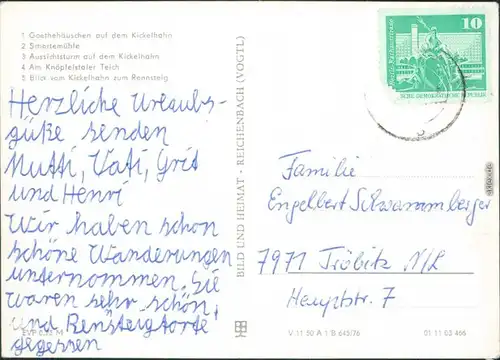 1 Goethehäuschen auf dem Kickelhahn
2 Smortemühle
3 Aussichtsturm auf dem Kickelhahn
4 Am Knöpfelstaler Teich
5 Blick vom Kickelhahn zum Rennsteig
Herzliche Urlaubs-
grüße senden
Mutti, Vati, Grit
und Henri
Wir haben schon
schöne Wanderungen
unternommen. Sie
waren sehr schön,
und Rensteigtorte
gegessen
EVP 0,20 M
BILD UND HEIMAT · REICHENBACH (VOGTL)
10
Familie
Engelbert Schwaramberger
7971 Tröbitz N/L
Hauptstr. 7
V 11 50 A 1 B 645/76
01 11 03 466